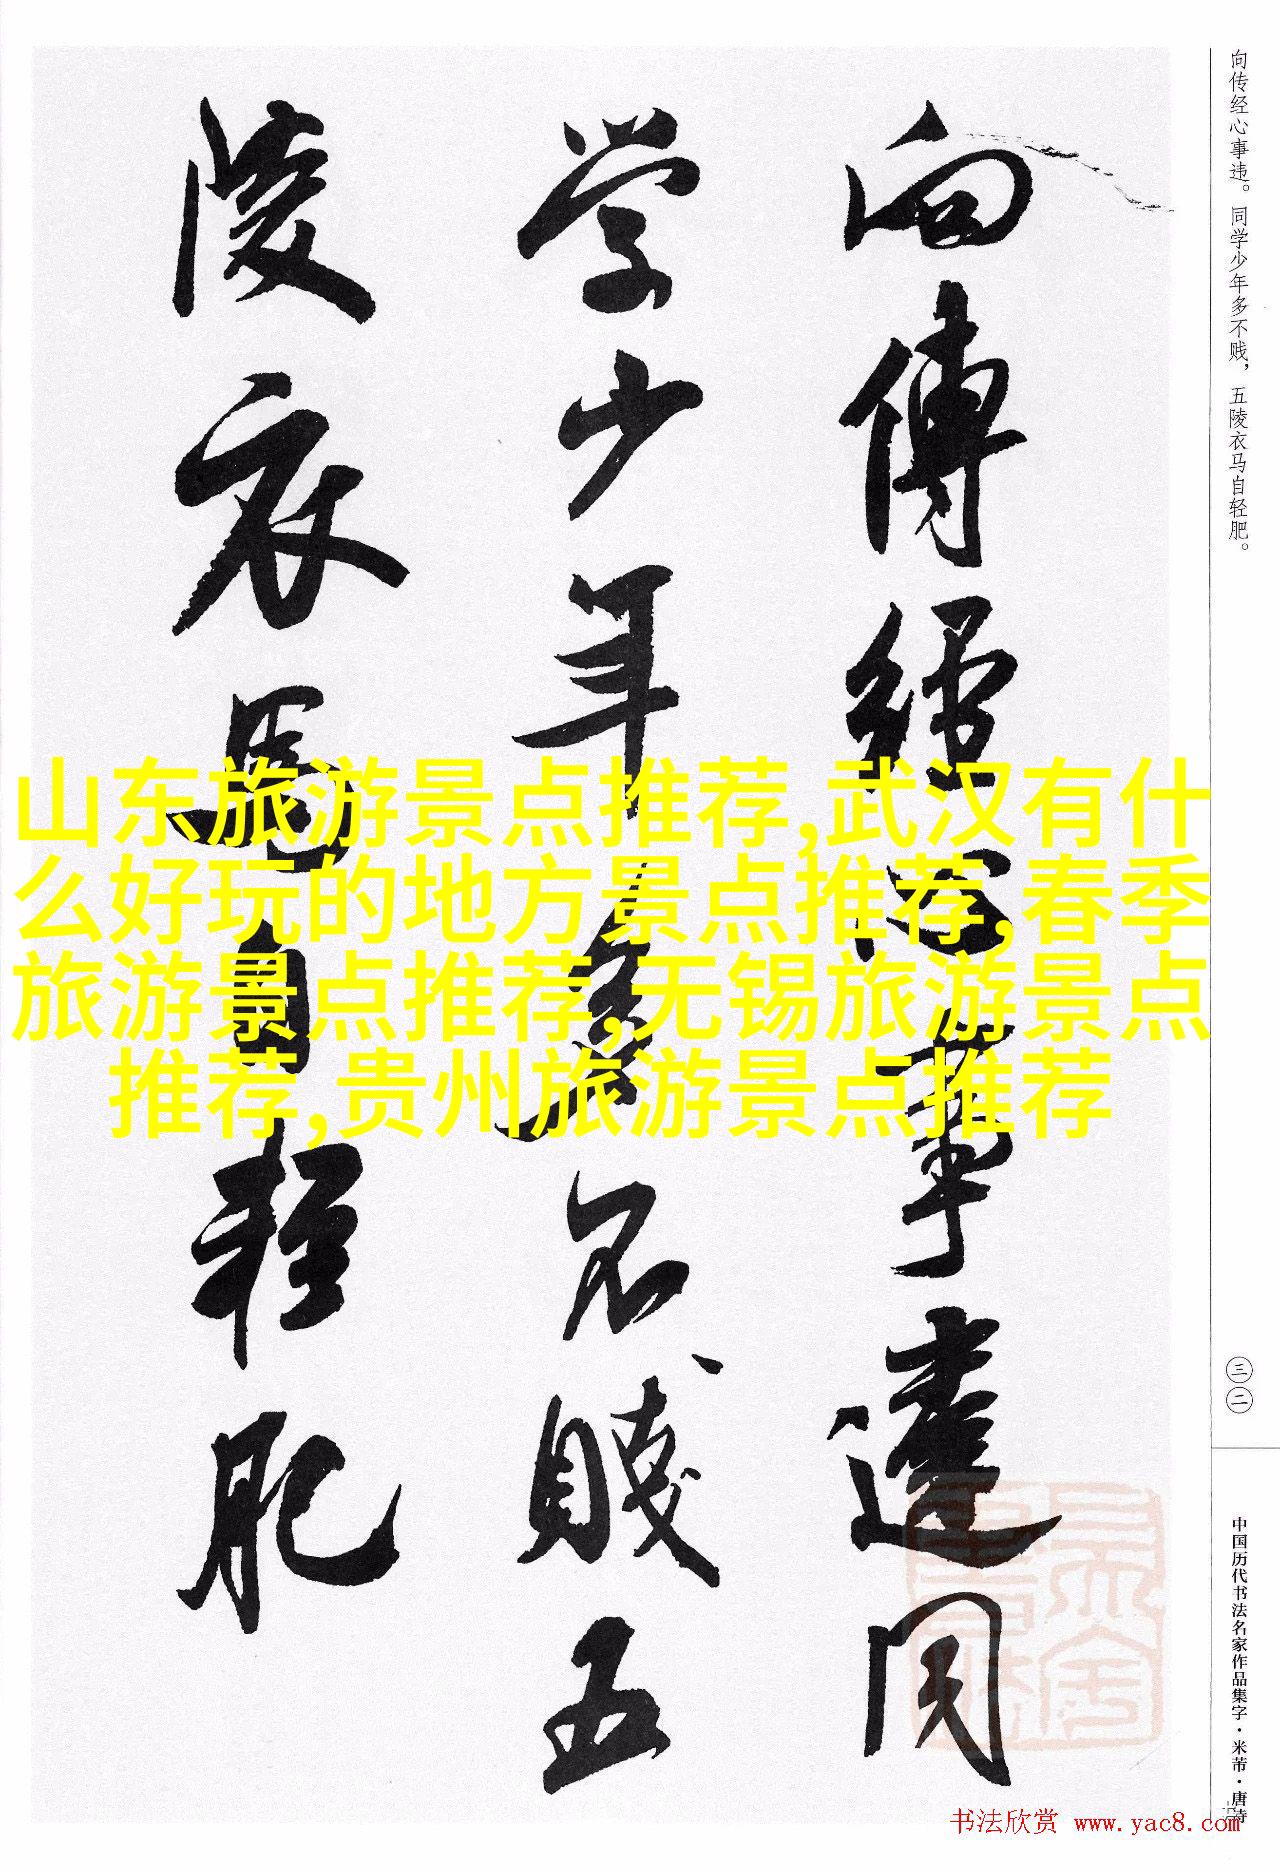 向传经心事违。同学少年多不贱，五陵衣马自轻肥。
向傳經心事違同
学少年多不賤五
陵衣馬自輕肥
山东旅游景点推荐,武汉有什
么好玩的地方景点推荐,春季
旅游景点推荐,无锡旅游景点
推荐,贵州旅游景点推荐
三二
中国历代书法名家作品集字·米芾·唐诗
书法欣赏 www.yac8.com